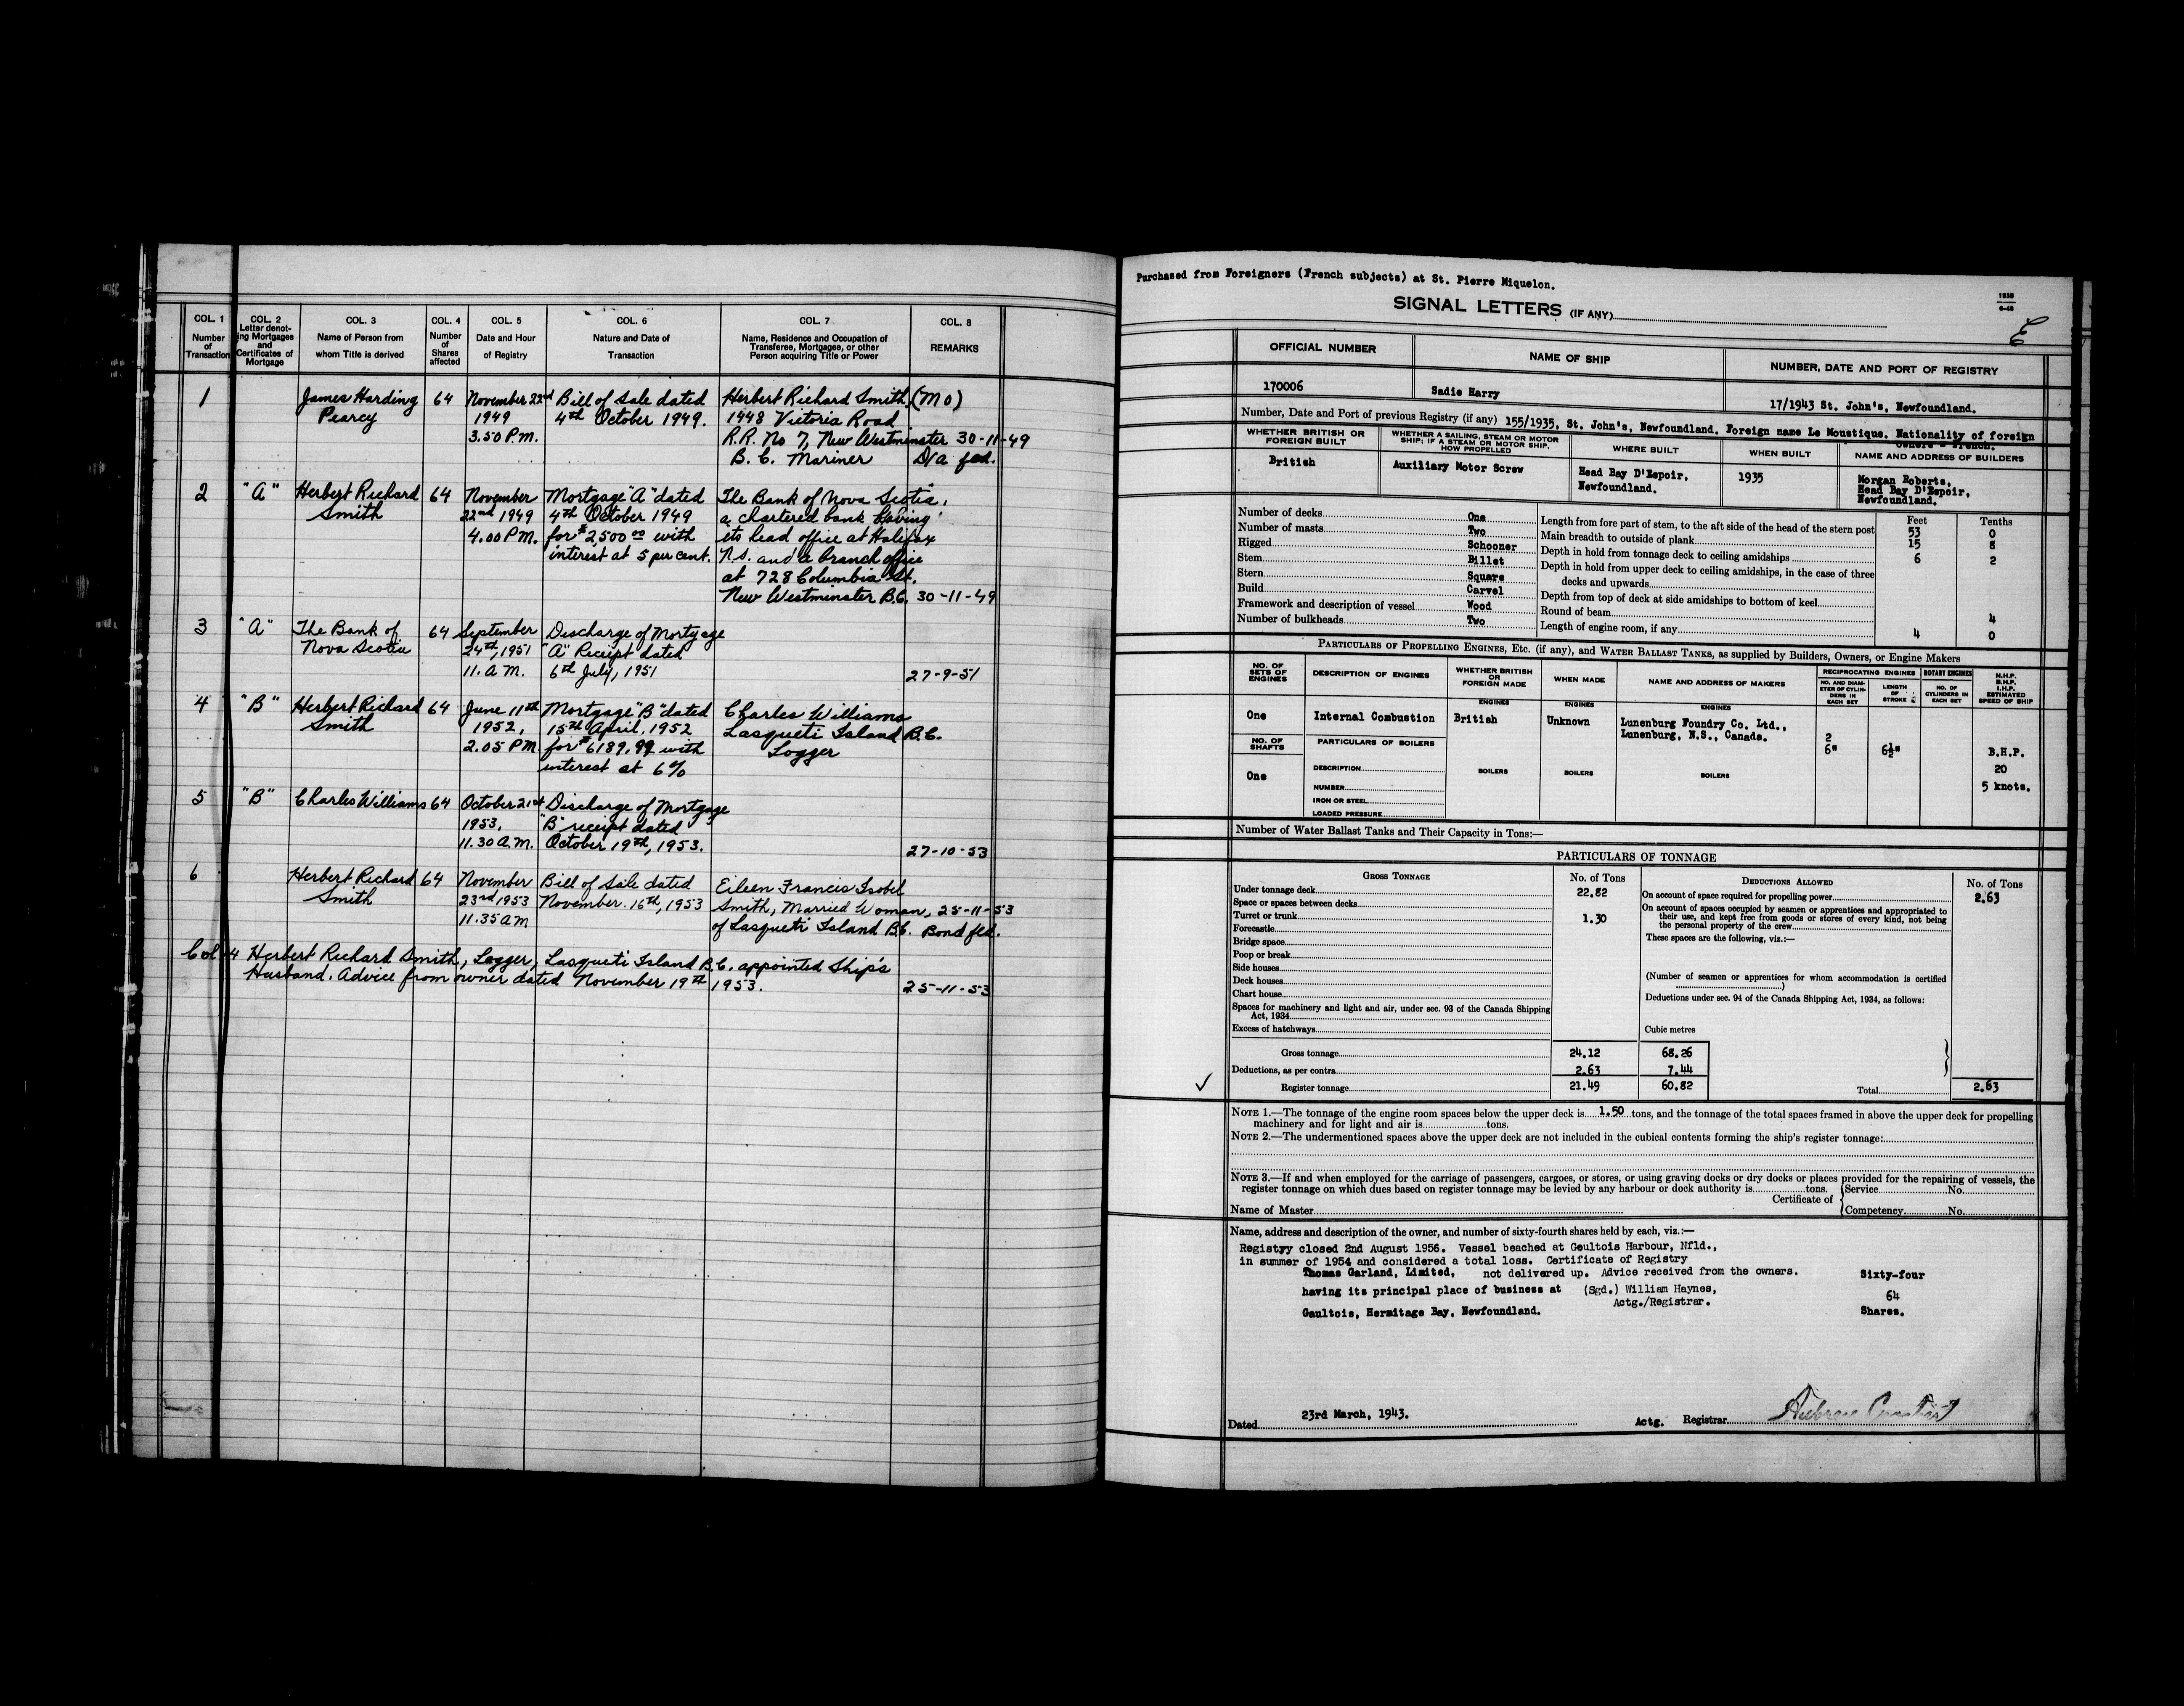 COL. 1
Number
of
Transaction
COL. 2
Letter denot-
ing Mortgages
and
Certificates of
Mortgage
COL. 3
Name of Person from
whom Title is derived
COL. 4
Number
of
Shares
affected
COL. 5
Date and Hour
of Registry
COL. 6
Nature and Date of
Transaction
COL. 7
Name, Residence and Occupation of
Transferee, Mortgagee, or other
Person acquiring Title or Power
COL. 8
REMARKS
1 James Harding 64 November 22nd Bill of Sale dated Herbert Richard Smith (Mo)
Pearcy 1949 4th October 1949. 1448 Victoria Road
3.50 P.M. R.R. No 7, New Westminster 30-11-49
B. C. Mariner D/a fed.
2 "A" Herbert Richard 64 November Mortgage "A" dated The Bank of Nova Scotia,
Smith 22nd 1949 4th October 1949 a chartered bank having
4.00 P.M. for $2,500 00 with its head office at Halifax
interest at 5 per cent. N.S. and a branch office
at 728 Columbia St.
New Westminster B.C. 30-11-49
3 "A" The Bank of 64 September Discharge of Mortgage
Nova Scotia 24th, 1951 "A" Receipt dated
11. A.M. 6th July, 1951 27-9-51
4 "B" Herbert Richard 64 June 11th Mortgage "B" dated Charles Williams
Smith 1952, 15th April, 1952 Lasqueti Island B.C.
2.05 P.M. for $6189.99 with Logger
interest at 6%
5 "B" Charles Williams 64 October 21st Discharge of Mortgage
1953. "B" receipt dated
11.30 A.M. October 19th, 1953. 27-10-53
6 Herbert Richard 64 November Bill of Sale dated Eileen Francis Isobel
Smith 23rd 1953 November 16th, 1953 Smith, Married Woman, 25-11-53
11.35 AM of Lasqueti Island B.C. Bond fed.
Col 4 Herbert Richard Smith, Logger, Lasqueti Island B.C. appointed Ship's
Husband. Advice from owner dated November 19th 1953. 25-11-53
Purchased from Foreigners (French subjects) at St. Pierre Miquelon.
SIGNAL LETTERS (IF ANY)
E
OFFICIAL NUMBER NAME OF SHIP NUMBER, DATE AND PORT OF REGISTRY
170006 Sadie Harry 17/1943 St. John's, Newfoundland.
Number, Date and Port of previous Registry (if any) 155/1935, St. John's, Newfoundland. Foreign name Le Moustique. Nationality of foreign
owners - French.
WHETHER BRITISH OR
FOREIGN BUILT
WHETHER A SAILING, STEAM OR MOTOR
SHIP; IF A STEAM OR MOTOR SHIP,
HOW PROPELLED
WHERE BUILT
WHEN BUILT
NAME AND ADDRESS OF BUILDERS
British
Auxiliary Motor Screw
Head Bay D'Espoir,
Newfoundland.
1935
Morgan Roberts,
Head Bay D'Espoir,
Newfoundland.
Number of decks One
Number of masts Two
Rigged Schooner
Stem Billet
Stern Square
Build Carvel
Framework and description of vessel Wood
Number of bulkheads Two
Feet Tenths
Length from fore part of stem, to the aft side of the head of the stern post 53 0
Main breadth to outside of plank 15 8
Depth in hold from tonnage deck to ceiling amidships 6 2
Depth in hold from upper deck to ceiling amidships, in the case of three
decks and upwards
Depth from top of deck at side amidships to bottom of keel
Round of beam 4
Length of engine room, if any 4 0
PARTICULARS OF PROPELLING ENGINES, ETC. (if any), and WATER BALLAST TANKS, as supplied by Builders, Owners, or Engine Makers
NO. OF
SETS OF
ENGINES
DESCRIPTION OF ENGINES
WHETHER BRITISH
OR
FOREIGN MADE
WHEN MADE
NAME AND ADDRESS OF MAKERS
RECIPROCATING ENGINES
NO. AND DIAM-
ETER OF CYLIN-
DERS IN
EACH SET
LENGTH
OF
STROKE
ROTARY ENGINES
NO. OF
CYLINDERS IN
EACH SET
N.H.P.
B.H.P.
I.H.P.
ESTIMATED
SPEED OF SHIP
ENGINES ENGINES ENGINES
One Internal Combustion British Unknown Lunenburg Foundry Co. Ltd.,
Lunenburg, N.S., Canada.
2
6" 6½"
B.H.P.
20
5 knots.
NO. OF
SHAFTS
One
PARTICULARS OF BOILERS
DESCRIPTION
NUMBER
IRON OR STEEL
LOADED PRESSURE
BOILERS BOILERS BOILERS
Number of Water Ballast Tanks and Their Capacity in Tons:—
PARTICULARS OF TONNAGE
GROSS TONNAGE No. of Tons
Under tonnage deck 22.82
Space or spaces between decks
Turret or trunk 1.30
Forecastle
Bridge space
Poop or break
Side houses
Deck houses
Chart house
Spaces for machinery and light and air, under sec. 93 of the Canada Shipping
Act, 1934
Excess of hatchways
Cubic metres
Gross tonnage 24.12 68.26
Deductions, as per contra 2.63 7.44
Register tonnage 21.49 60.82
DEDUCTIONS ALLOWED No. of Tons
On account of space required for propelling power 2.63
On account of spaces occupied by seamen or apprentices and appropriated to
their use, and kept free from goods or stores of every kind, not being
the personal property of the crew
These spaces are the following, viz.:—
(Number of seamen or apprentices for whom accommodation is certified
)
Deductions under sec. 94 of the Canada Shipping Act, 1934, as follows:
Total 2.63
NOTE 1.—The tonnage of the engine room spaces below the upper deck is 1.50 tons, and the tonnage of the total spaces framed in above the upper deck for propelling
machinery and for light and air is tons.
NOTE 2.—The undermentioned spaces above the upper deck are not included in the cubical contents forming the ship's register tonnage:
NOTE 3.—If and when employed for the carriage of passengers, cargoes, or stores, or using graving docks or dry docks or places provided for the repairing of vessels, the
register tonnage on which dues based on register tonnage may be levied by any harbour or dock authority is tons.
Certificate of Service No.
Competency No.
Name of Master
Name, address and description of the owner, and number of sixty-fourth shares held by each, viz.:—
Registry closed 2nd August 1956. Vessel beached at Geultois Harbour, Nfld.,
in summer of 1954 and considered a total loss. Certificate of Registry
Thomas Garland, Limited, not delivered up. Advice received from the owners. Sixty-four
having its principal place of business at (Sgd.) William Haynes, 64
Actg./Registrar.
Gaultois, Hermitage Bay, Newfoundland. Shares.
Dated 23rd March, 1943. Actg. Registrar